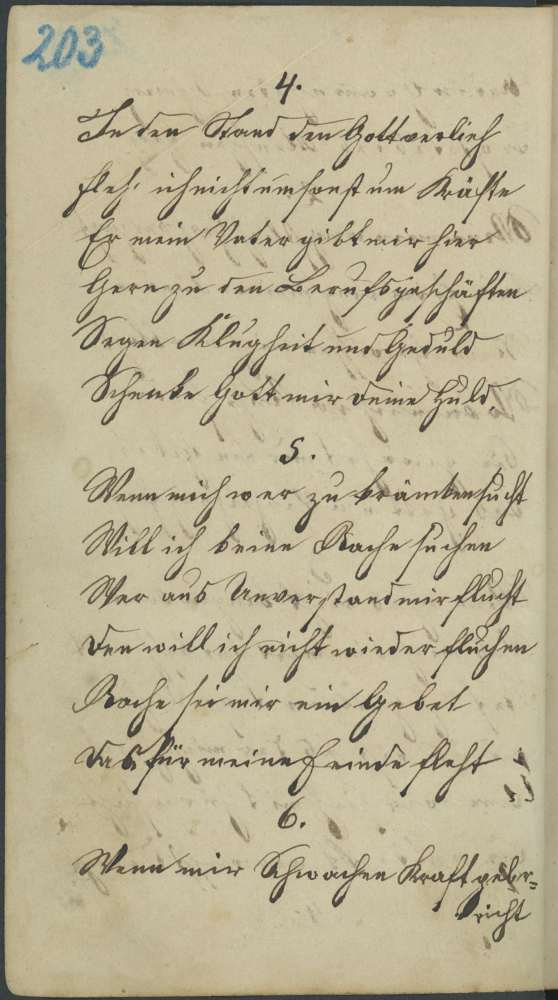 203
4.
In den Stand den Gott verlieh
fleh' ich nicht umsonst um Kräfte
Er mein Vater gibt mir hier
Gern zu den Berufsgeschäften
Segen Klugheit und Geduld
Schenke Gott mir deine Huld,
5.
Wenn mich wer zu kränken sucht
Will ich keine Rache suchen
Wer aus Unverstand mir flucht
Den will ich nicht wieder fluchen
Rache sei mir ein Gebet
Das für meine Feinde fleht
6.
Wenn mir Schwachen Kraft gebr=
richt